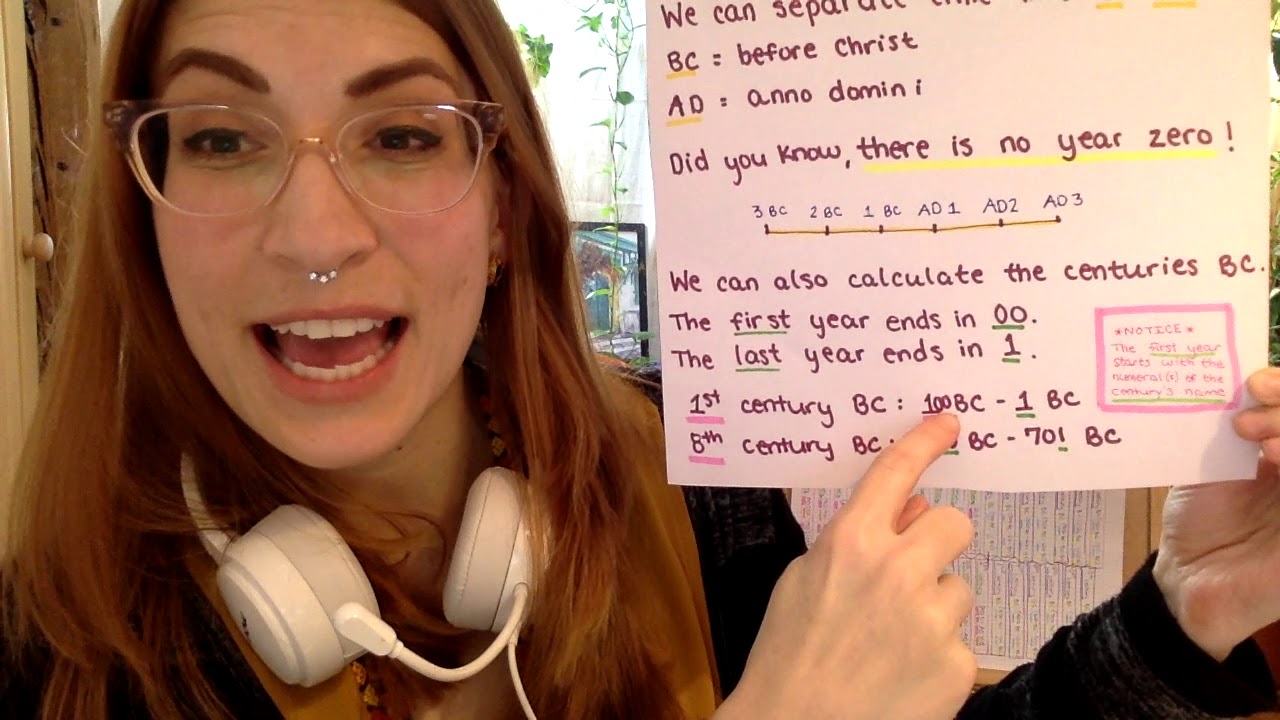 We can separate
BC = before Christ
AD = anno domini
Did you know, there is no year zero!
3 BC 2 BC 1 BC AD 1 AD 2 AD 3
We can also calculate the centuries BC.
The first year ends in 00.
The last year ends in 1.
*NOTICE*
The first year
starts with the
numeral(s) of the
century's name
1st century BC: 100BC - 1 BC
8th century BC: BC - 701 BC